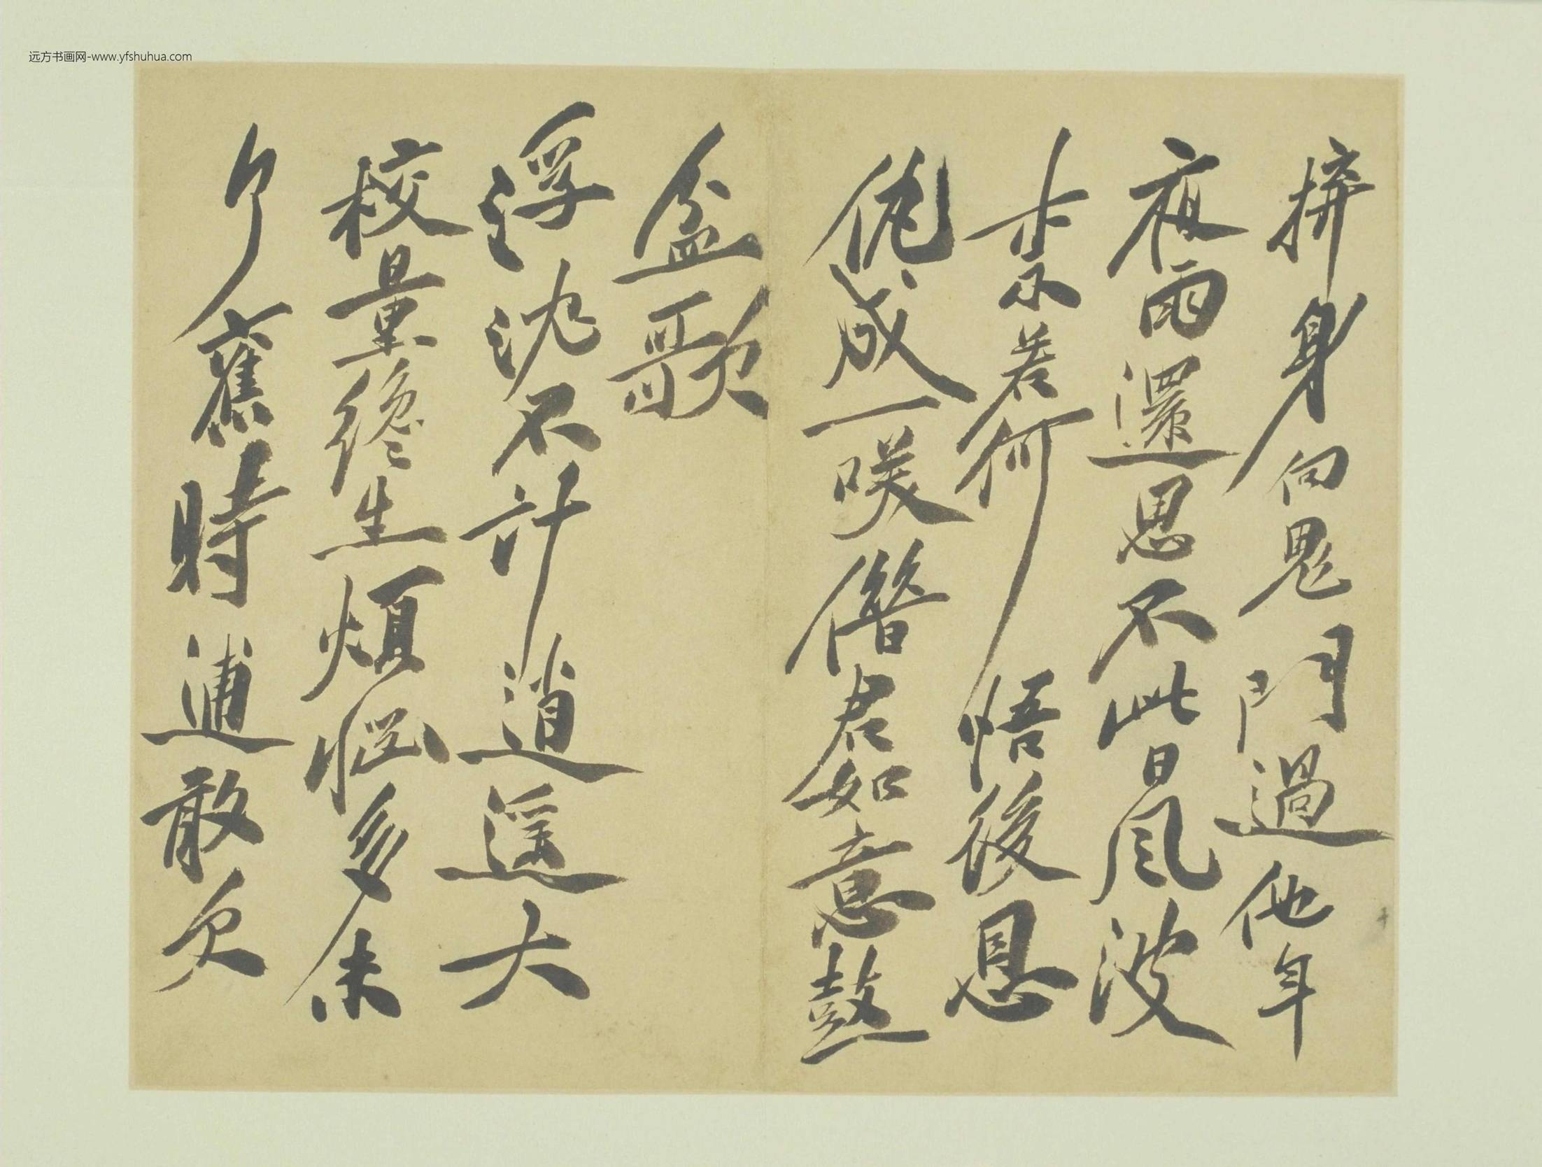 远方书画网-www.yfshuhua.com
拚身向鬼門過他年
夜雨還思不此日風波
未若何悟後恩
仇成一咲儹君如意鼓
盆歌
浮沈不計逍遥大
校量終生煩惱多未
了舊時逋敢欠